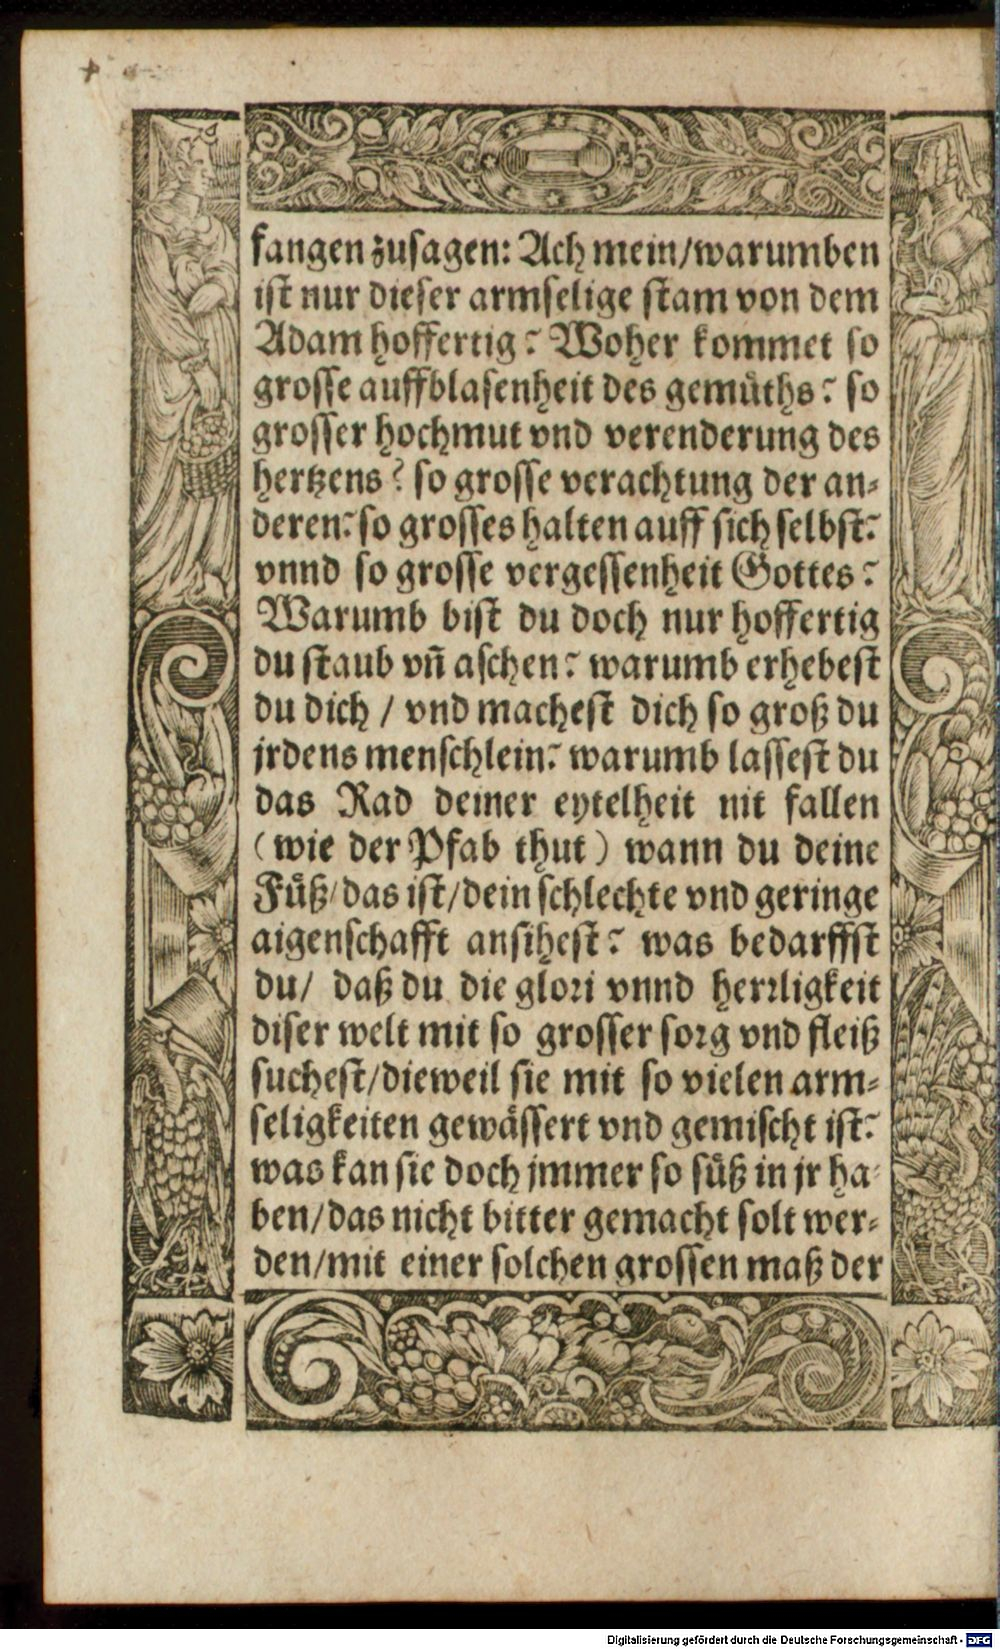 fangen zusagen: Ach mein/warumben
ist nur dieser armselige stam von dem
Adam hoffertig? Woher kommet so
grosse auffblasenheit des gemüths? so
grosser hochmut vnd verenderung des
hertzens? so grosse verachtung der an-
deren? so grosses halten auff sich selbst?
vnnd so grosse vergessenheit Gottes?
Warumb bist du doch nur hoffertig
du staub vñ aschen? warumb erhebest
du dich / vnd machest dich so groß du
jrdens menschlein? warumb lassest du
das Rad deiner eytelheit nit fallen
(wie der Pfab thut) wann du deine
Füß/das ist/dein schlechte vnd geringe
aigenschafft ansihest? was bedarffst
du/ daß du die glori vnnd herrligkeit
diser welt mit so grosser sorg vnd fleiß
suchest/dieweil sie mit so vielen arm-
seligkeiten gewässert vnd gemischt ist?
was kan sie doch jmmer so süß in jr ha-
ben/das nicht bitter gemacht solt wer-
den/mit einer solchen grossen maß der
Digitalisierung gefördert durch die Deutsche Forschungsgemeinschaft - DFG